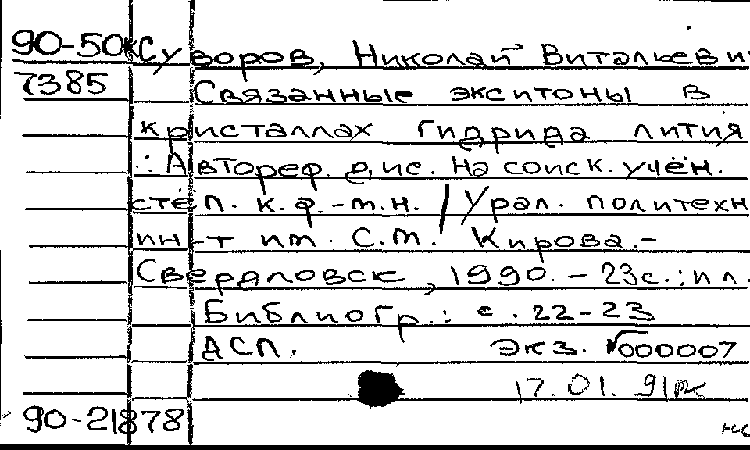 90-50к Суворов, Николай Витальеви
7385 Связанные экситоны в
кристаллах гидрида лития
: Автореф. дис. на соиск. учён.
степ. к.ф.-м.н. / Урал. политехн
ин-т им. С.М. Кирова.-
Свердловск, 1990. - 23с.: ил.
Библиогр.: с. 22-23
ДСП. Экз. №000007
17.01.91
90-21878